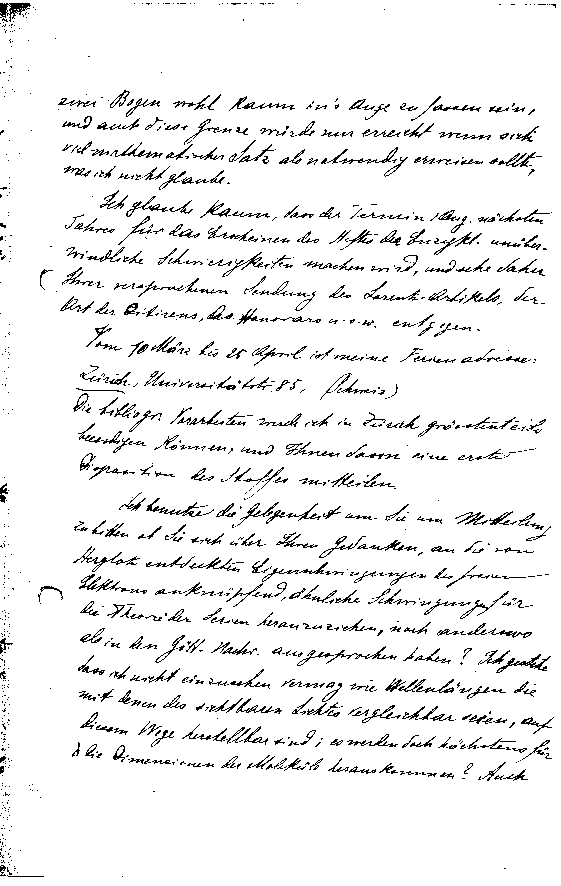 zwei Bogen wohl kaum in's Auge zu fassen sein,
und auch diese Grenze würde nur erreicht wenn sich
viel mathematischer Satz als notwendig erweisen sollte,
was ich nicht glaube.
Ich glaube kaum, dass der Termin 1 Aug. nächsten
Jahres für das Erscheinen des Heftes der Enzykl. unüber-
windliche Schwierigkeiten machen wird, und sehe daher
Ihrer versprochenen Sendung des Lorentz-Artikels, der
Art der Citirens, des Honorars u.s.w. entgegen.
Vom 10 März bis 25 April ist meine Ferienadresse:
Zürich, Universitätstr. 85, (Schweiz)
Die bibliogr. Vorarbeiten werde ich in Zürich grösstenteils
beendigen können, und Ihnen dann eine erste
Disposition des Stoffes mitteilen.
Ich benutze die Gelegenheit um Sie um Mitteilung
zu bitten ob Sie sich über Ihren Gedanken, an die von
Herglotz entdeckten Eigenschwingungen des freien
Elektrons anknüpfend, ähnliche Schwingungen für
die Theorie der Serien heranzuziehen, noch anderswo
als in den Gött. Nachr. ausgesprochen haben? Ich gestehe
dass ich nicht einzusehen vermag wie Wellenlängen die
mit denen des sichtbaren Lichtes vergleichbar seien, auf
diesem Wege herstellbar sind; es werden doch höchstens für
λ die Dimensionen der Moleküle herauskommen? Auch